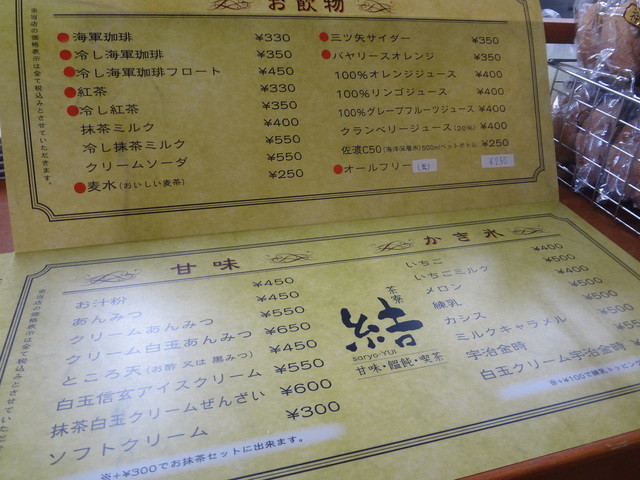 お飲物
海軍珈琲 ¥330
冷し海軍珈琲 ¥350
冷し海軍珈琲フロート ¥450
紅茶 ¥330
冷し紅茶 ¥350
抹茶ミルク ¥400
冷し抹茶ミルク ¥550
クリームソーダ ¥550
麦水(おいしい麦茶) ¥250
三ツ矢サイダー ¥350
バヤリースオレンジ ¥350
100%オレンジジュース ¥400
100%リンゴジュース ¥400
100%グレープフルーツジュース ¥400
クランベリージュース(20%) ¥400
佐渡C50(海洋深層水)500mlペットボトル ¥250
オールフリー ¥250
※当店の価格表示は全て税込みとさせていただきます。
甘味
お汁粉 ¥450
あんみつ ¥450
クリームあんみつ ¥550
クリーム白玉あんみつ ¥650
ところ天(お酢 又は 黒みつ) ¥450
白玉信玄アイスクリーム ¥550
抹茶白玉クリームぜんざい ¥600
ソフトクリーム ¥300
※+¥300でお抹茶セットに出来ます。
茶寮
結
saryo-YUI
甘味・饂飩・喫茶
かき氷
いちご ¥400
いちごミルク ¥500
メロン ¥400
練乳 ¥500
カシス ¥500
ミルクキャラメル ¥500
宇治金時
白玉クリーム宇治金時
※+¥100で練乳トッピング